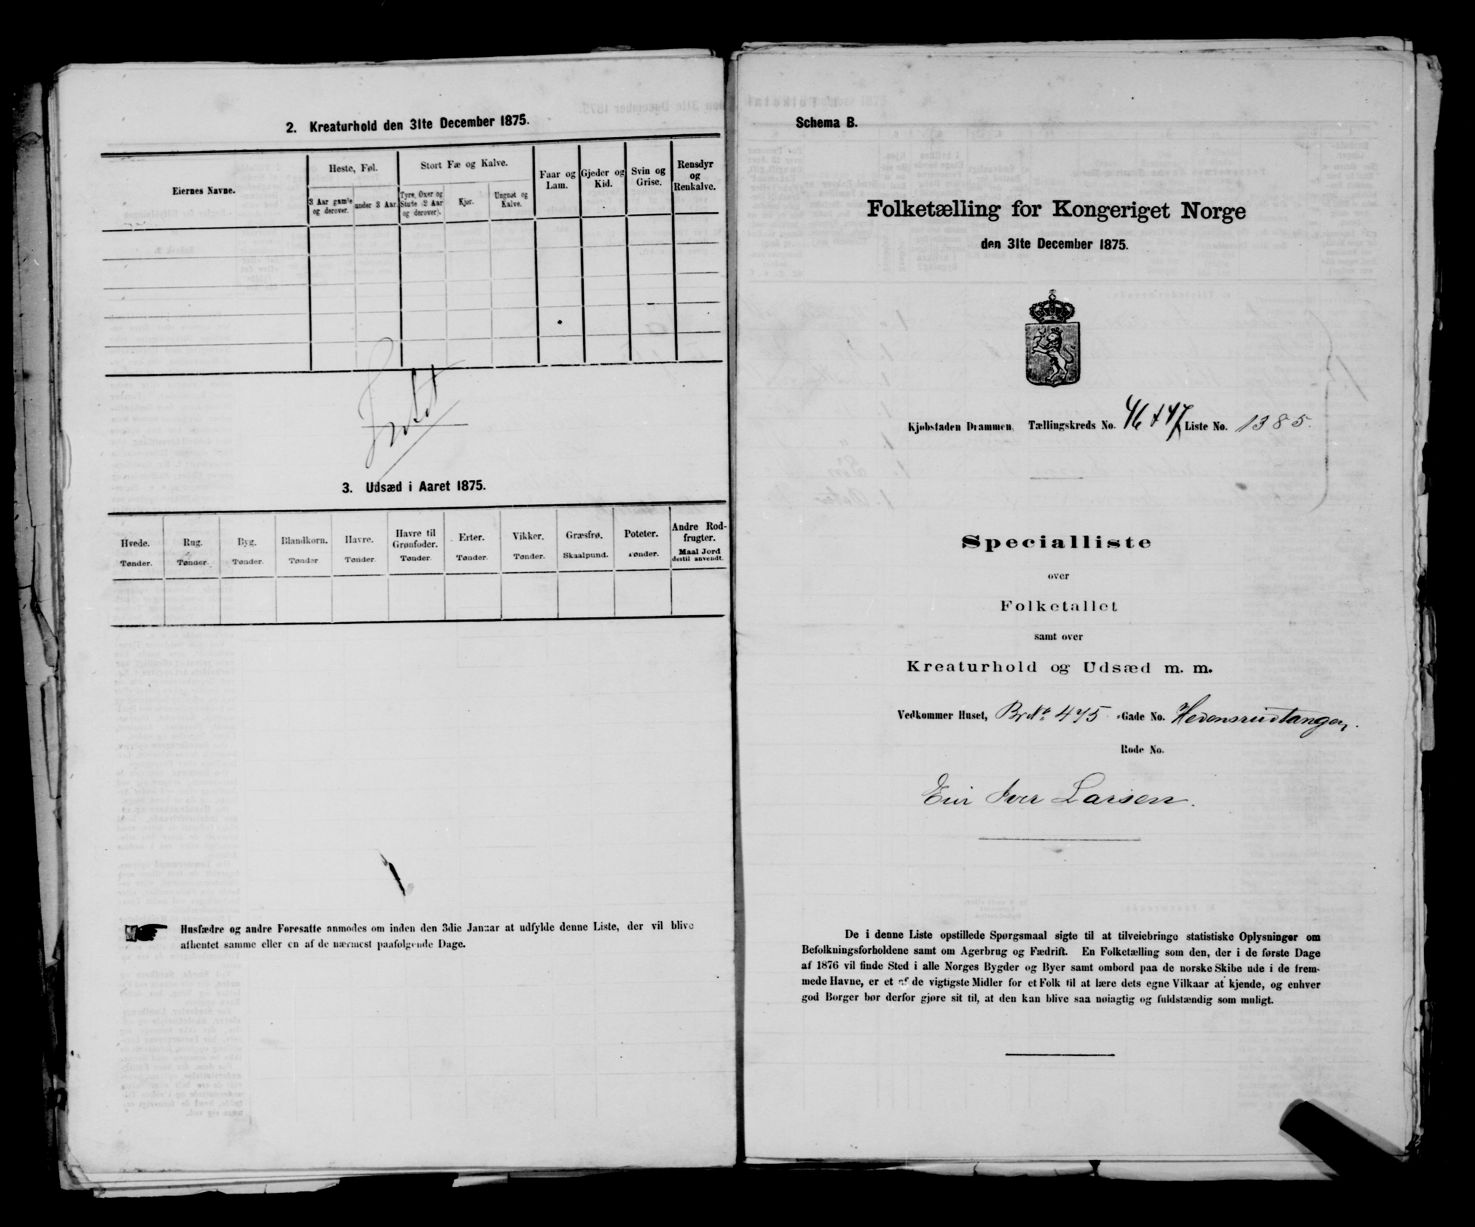 2. Kreaturhold den 31te December 1875.
Eiernes Navne.
Heste, Føl.
Stort Fæ og Kalve.
Faar og Lam.
Gjeder og Kid.
Svin og Grise.
Rensdyr og Renkalve.
3 Aar gamle og derover.
under 3 Aar.
Tyre, Oxer og Stute (2 Aar og derover).
Kjør.
Ungnøt og Kalve.
3. Udsæd i Aaret 1875.
Hvede. Rug. Byg. Blandkorn. Havre. Havre til Grønfoder. Erter. Vikker. Græsfrø. Poteter. Andre Rodfrugter.
Tønder. Tønder. Tønder. Tønder Tønder. Tønder. Tønder. Tønder. Skaalpund. Tønder. Maal Jord dertil anvendt.
Husfædre og andre Foresatte anmodes om inden den 3die Januar at udfylde denne Liste, der vil blive
afhentet samme eller en af de nærmest paafølgende Dage.
Schema B.
Folketælling for Kongeriget Norge
den 31te December 1875.
Kjøbstaden Drammen. Tællingskreds No. 46 + 47 Liste No. 1385.
Specialliste
over
Folketallet
samt over
Kreaturhold og Udsæd m. m.
Vedkommer Huset, Br No 475 Gade No. Hedensrudtangen.
Rode No.
Eier Iver Larsen.
De i denne Liste opstillede Spørgsmaal sigte til at tilveiebringe statistiske Oplysninger om
Befolkningsforholdene samt om Agerbrug og Fædrift. En Folketælling som den, der i de første Dage
af 1876 vil finde Sted i alle Norges Bygder og Byer samt ombord paa de norske Skibe ude i de frem-
mede Havne, er et af de vigtigste Midler for et Folk til at lære dets egne Vilkaar at kjende, og enhver
god Borger bør derfor gjøre sit til, at den kan blive saa nøiagtig og fuldstændig som muligt.